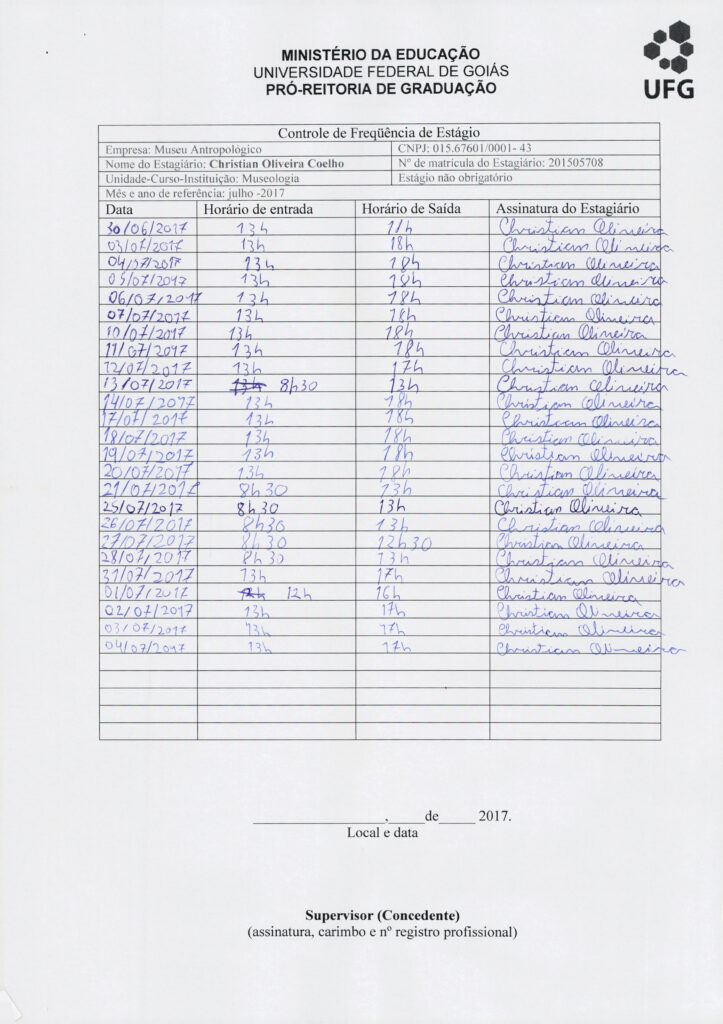 MINISTÉRIO DA EDUCAÇÃO
UNIVERSIDADE FEDERAL DE GOIÁS
PRÓ-REITORIA DE GRADUAÇÃO
UFG
Controle de Freqüência de Estágio
Empresa: Museu Antropológico CNPJ: 015.67601/0001- 43
Nome do Estagiário: Christian Oliveira Coelho Nº de matrícula do Estagiário: 201505708
Unidade-Curso-Instituição: Museologia Estágio não obrigatório
Mês e ano de referência: julho -2017
Data Horário de entrada Horário de Saída Assinatura do Estagiário
30/06/2017 13h 18h Christian Oliveira
03/07/2017 13h 18h Christian Oliveira
04/07/2017 13h 18h Christian Oliveira
05/07/2017 13h 18h Christian Oliveira
06/07/2017 13h 18h Christian Oliveira
07/07/2017 13h 18h Christian Oliveira
10/07/2017 13h 18h Christian Oliveira
11/07/2017 13h 18h Christian Oliveira
12/07/2017 13h 17h Christian Oliveira
13/07/2017 13h 8h30 13h Christian Oliveira
14/07/2017 13h 18h Christian Oliveira
17/07/2017 13h 18h Christian Oliveira
18/07/2017 13h 18h Christian Oliveira
19/07/2017 13h 18h Christian Oliveira
20/07/2017 13h 18h Christian Oliveira
21/07/2017 8h30 13h Christian Oliveira
25/07/2017 8h30 13h Christian Oliveira
26/07/2017 8h30 13h Christian Oliveira
27/07/2017 8h30 12h30 Christian Oliveira
28/07/2017 8h30 13h Christian Oliveira
31/07/2017 13h 17h Christian Oliveira
01/07/2017 12h 16h Christian Oliveira
02/07/2017 13h 17h Christian Oliveira
03/07/2017 13h 17h Christian Oliveira
04/07/2017 13h 17h Christian Oliveira
____________________,_____de_____ 2017.
Local e data
Supervisor (Concedente)
(assinatura, carimbo e nº registro profissional)